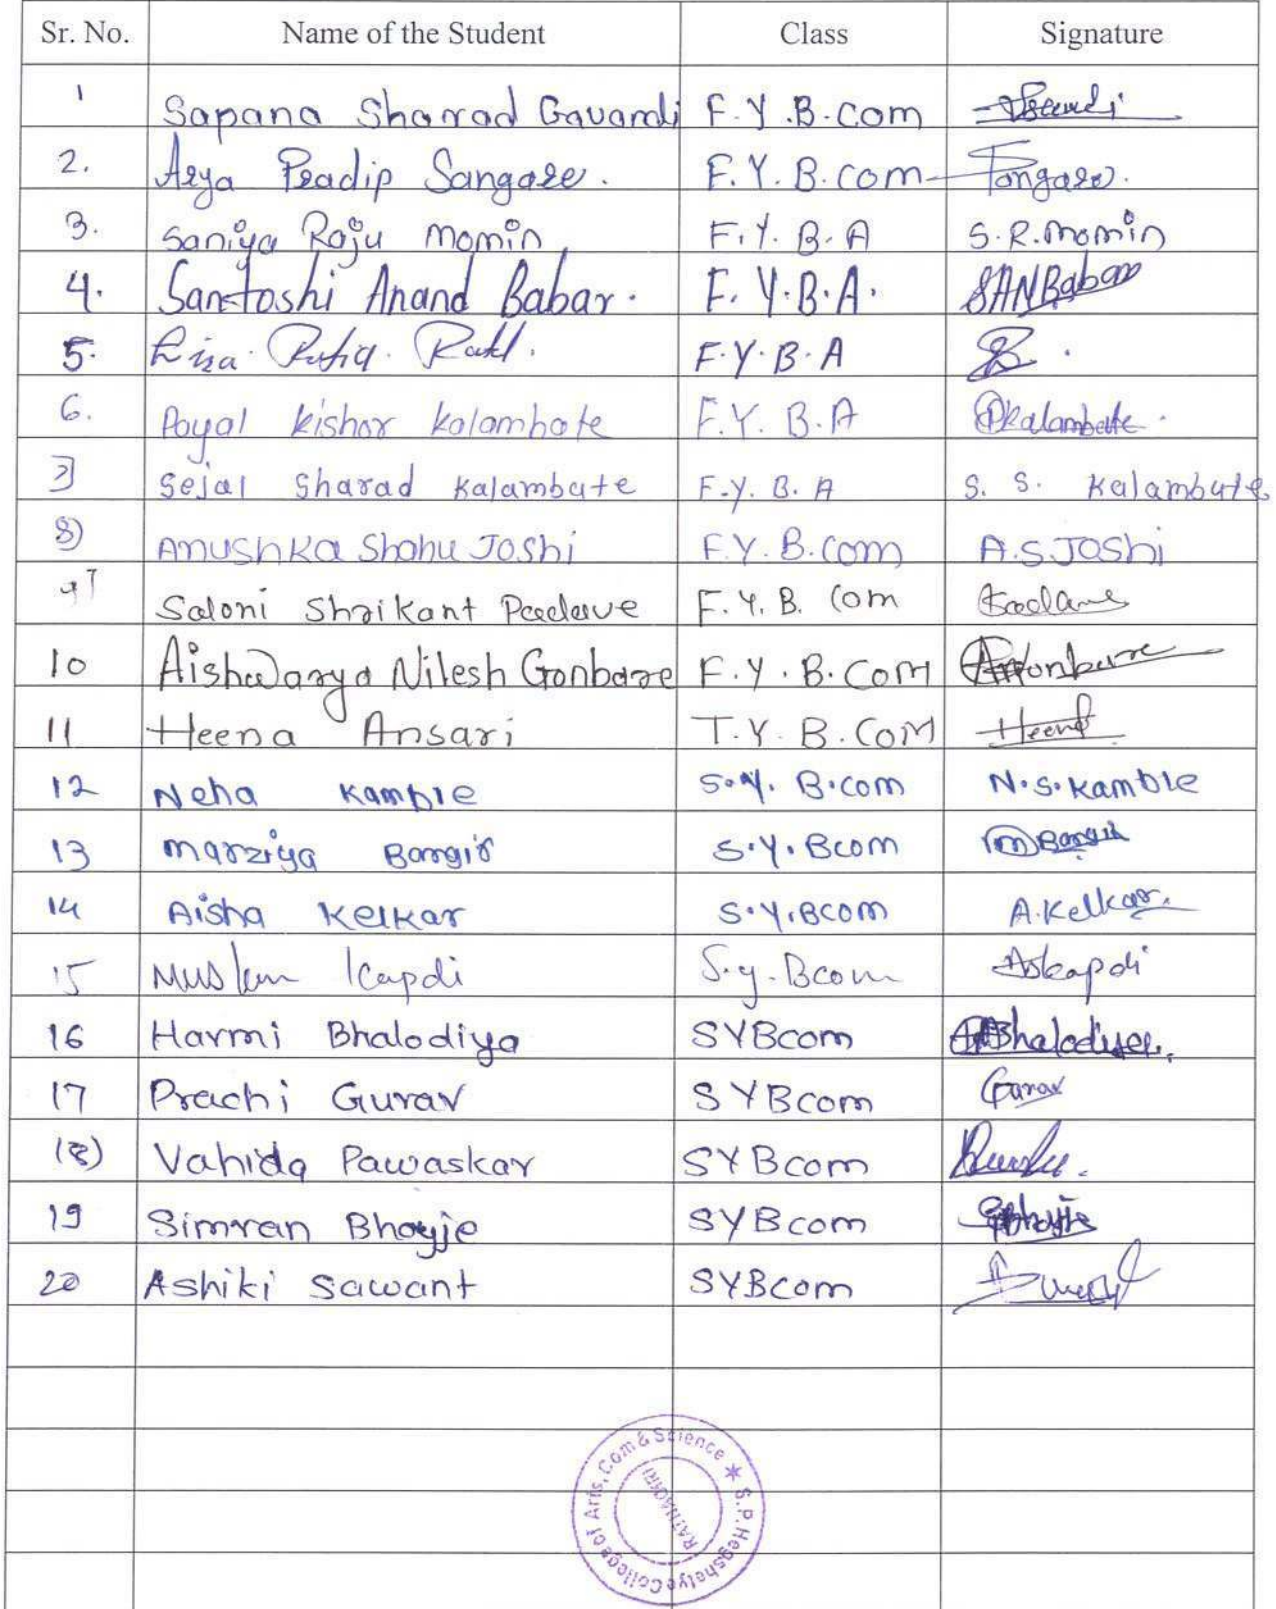 Sr. No. Name of the Student Class Signature
1 Sapana Sharad Gavandi F.Y.B.Com
2. Arya Pradip Sangare. F.Y.B.com Sangare.
3. Saniya Raju Momin F.Y.B.A S.R.Momin
4. Santoshi Anand Babar. F.Y.B.A. SANBabar
5. F.Y.B.A
6. Payal kishor kalambate F.Y.B.A Pkalambate.
7] Sejal Sharad Kalambate F.Y.B.A S. S. Kalambate
8) Anushka Shahu Joshi F.Y.B.Com A.S.Joshi
9] Saloni Shrikant Padave F.Y.B.Com Padave
10 Aishwarya Nilesh Gonbare F.Y.B.Com
11 Heena Ansari T.Y.B.Com Heena
12 Neha Kamble S.Y.B.com N.S.Kamble
13 Marziya Bangi S.Y.Bcom
14 Aisha Kelkar S.Y.Bcom A.Kelkar.
15 Muskan Kapdi S.y.Bcom
16 Harmi Bhalodiya SYBcom Bhalodiya.
17 Prachi Gurav SYBcom Gurav
18) Vahida Pawaskar SYBcom
19 Simran Bhoyje SYBcom
20 Ashiki Sawant SYBcom
S.P.Hegshetye College of Arts, Com & Science ✶
RATNAGIRI